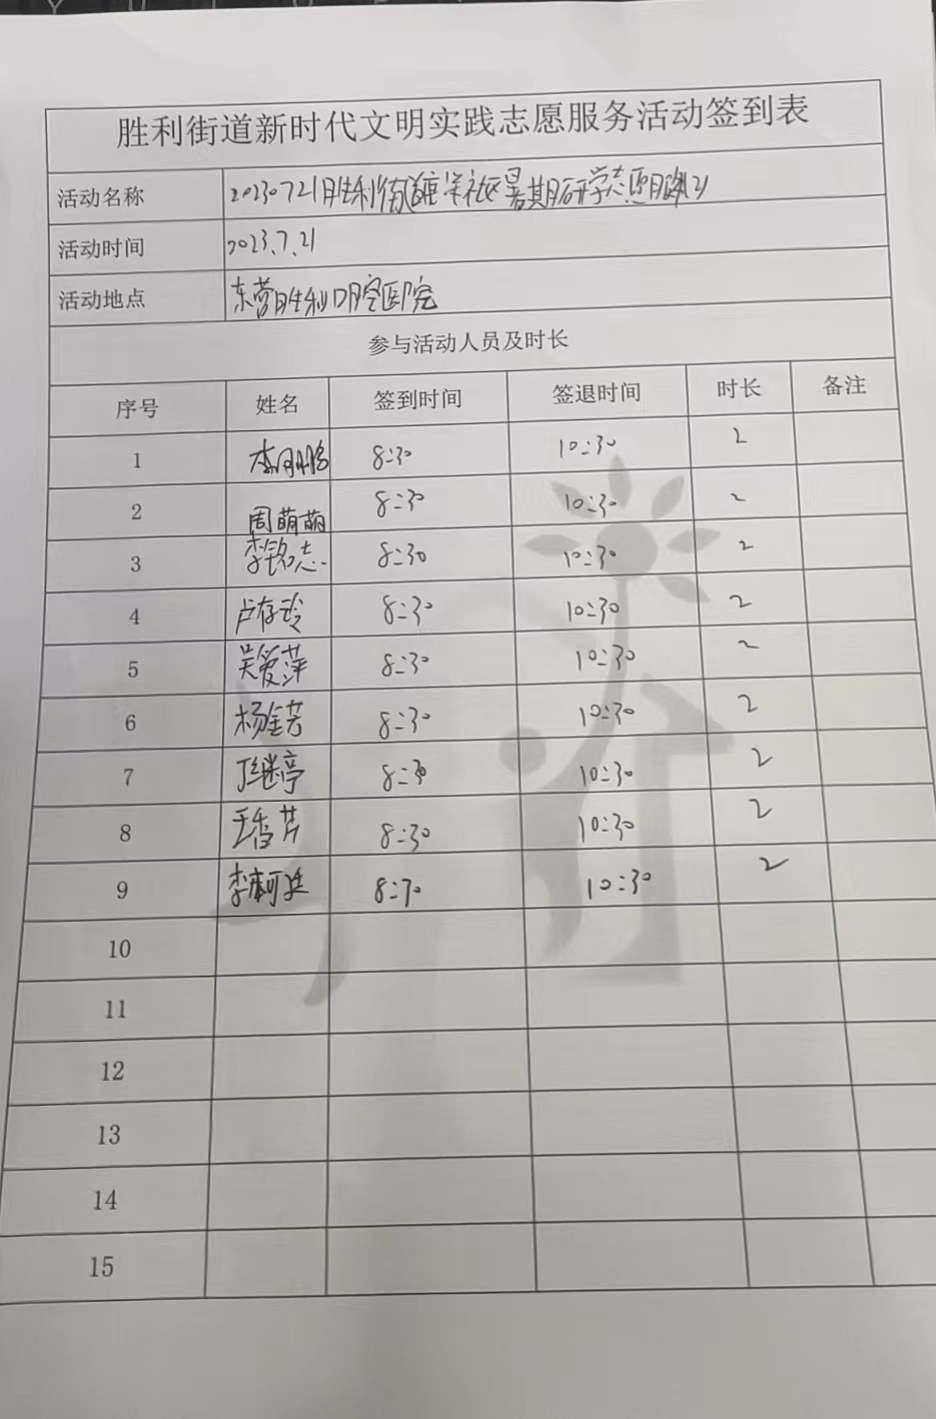 胜利街道新时代文明实践志愿服务活动签到表
活动名称 20230721胜利街道 社区暑期研学志愿服务21
活动时间 2023.7.21
活动地点 东营胜利口腔医院
参与活动人员及时长
序号 姓名 签到时间 签退时间 时长 备注
1 李 鹏 8:30 10:30 2
2 周萌萌 8:30 10:30 2
3 李铭志 8:30 10:30 2
4 卢存玲 8:30 10:30 2
5 吴爱萍 8:30 10:30 2
6 杨金芳 8:30 10:30 2
7 丁继亭 8:30 10:30 2
8 王香芹 8:30 10:30 2
9 李 8:30 10:30 2
10
11
12
13
14
15